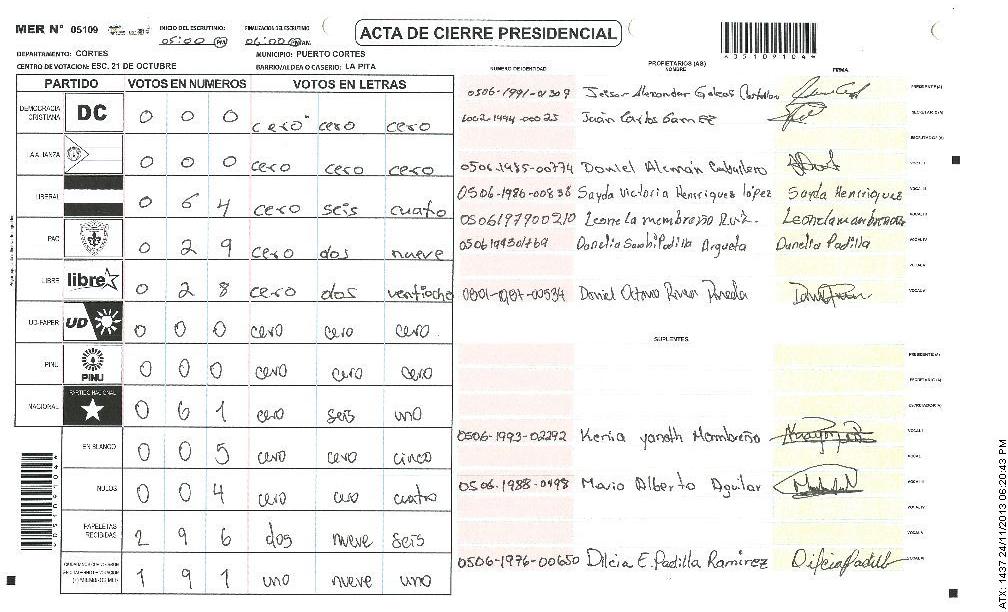 MER N° 05109 INICIO DEL ESCRUTINIO: 05:00 PM FINALIZACION DEL ESCRUTINIO 06:00 PM AM
ACTA DE CIERRE PRESIDENCIAL
DEPARTAMENTO: CORTES MUNICIPIO: PUERTO CORTES
CENTRO DE VOTACION: ESC. 21 DE OCTUBRE BARRIO/ALDEA O CASERIO: LA PITA
PARTIDO VOTOS EN NUMEROS VOTOS EN LETRAS
DEMOCRACIA CRISTIANA DC 0 0 0 cero cero cero
LA ALIANZA 0 0 0 cero cero cero
LIBERAL 0 6 4 cero seis cuatro
PAC 0 2 9 cero dos nueve
LIBRE libre 0 2 8 cero dos ventiocho
UD-FAPER UD 0 0 0 cero cero cero
PINU PINU 0 0 0 cero cero cero
NACIONAL PARTIDO NACIONAL 0 6 1 cero seis uno
EN BLANCO 0 0 5 cero cero cinco
NULOS 0 0 4 cero cero cuatro
PAPELETAS RECIBIDAS 2 9 6 dos nueve seis
1 9 1 uno nueve uno
NUMERO DE IDENTIDAD PROPIETARIOS (AS) NOMBRE FIRMA
0506-1991-01309 Alexander PRESIDENTE (A)
1002-1994-00025 Juan Carlos SECRETARIO (A)
ESCRUTADOR (A)
0506-1985-00774 Daniel Alemán Caballero VOCAL I
0506-1986-00838 Sayda Victoria Henriquez lópez Sayda Henriquez VOCAL II
0506197700210 Leonela membreño Ruiz. Leonela membreño VOCAL III
Danelia Padilla Argueta Danelia Padilla VOCAL IV
VOCAL V
Daniel Pineda VOCAL VI
SUPLENTES
PRESIDENTE (A)
SECRETARIO (A)
ESCRUTADOR (A)
0506-1993-02292 Kenia yanath Membreño VOCAL I
VOCAL II
0506-1988-0498 Mario Alberto Aguilar VOCAL III
VOCAL IV
VOCAL V
0506-1976-00650 Dilcia E. Padilla Ramirez Dilcia Padilla VOCAL VI
*05109104*
*05109104*
ATX: 1437 24/11/2013 06:20:43 PM